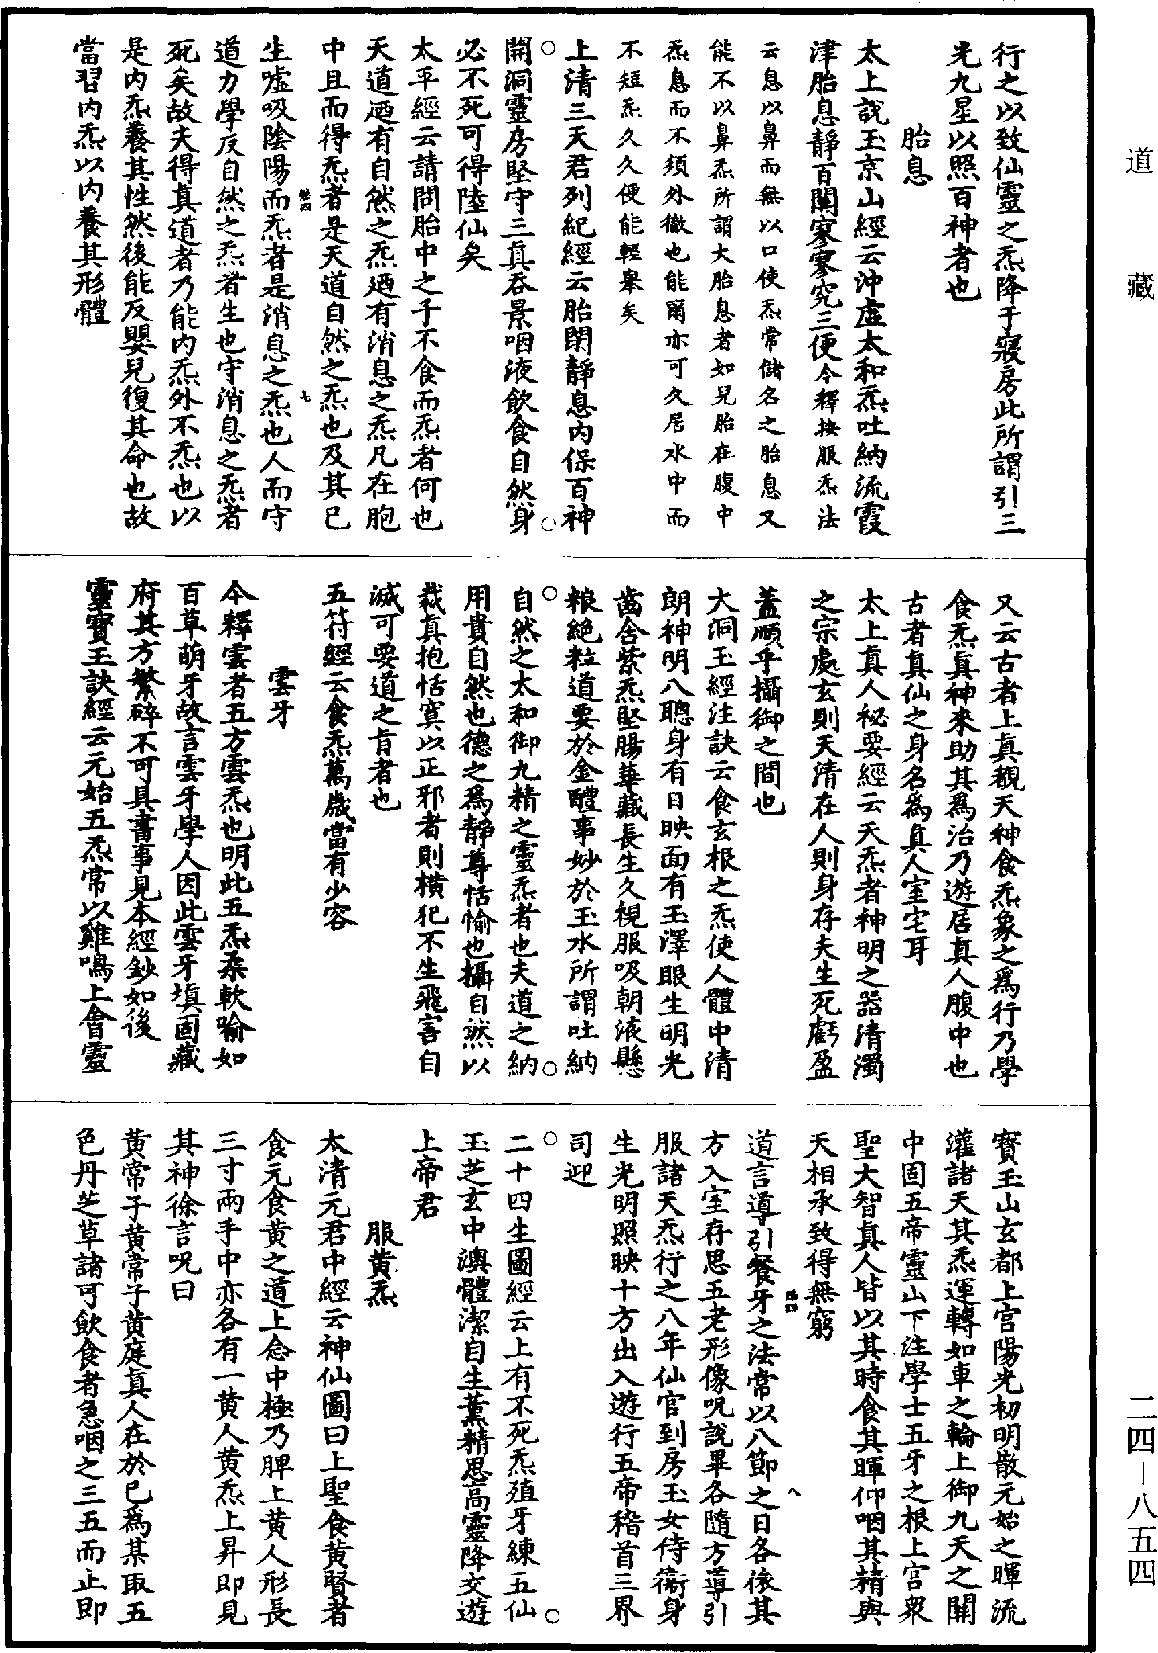 道藏
行之以致仙靈之炁降于寢房此所謂引三
光九星以照百神者也
胎息
太上說玉京山經云沖虛太和炁吐納流霞
津胎息靜百關寥寥究三便今釋按服炁法
云息以鼻而無以口使炁常儲名之胎息又
能不以鼻炁所謂大胎息者如兒胎在腹中
炁息而不須外徹也能爾亦可久居水中而
不短炁久久便能輕舉矣
上清三天君列紀經云胎閉靜息內保百神
開洞靈房堅守三真吞景咽液飲食自然身
必不死可得陸仙矣
太平經云請問胎中之子不食而炁者何也
天道迺有自然之炁迺有消息之炁凡在胞
中且而得炁者是天道自然之炁也及其已
生噓吸陰陽而炁者是消息之炁也人而守
道力學反自然之炁者生也守消息之炁者
死矣故夫得真道者乃能內炁外不炁也以
是內炁養其性然後能反嬰兒復其命也故
當習內炁以內養其形體
又云古者上真觀天神食炁象之為行乃學
食炁真神來助其為治乃遊居真人腹中也
古者真仙之身名為真人室宅耳
太上真人秘要經云天炁者神明之器清濁
之宗處玄則天清在人則身存夫生死虧盈
蓋順乎攝御之間也
大洞玉經注訣云食玄根之炁使人體中清
朗神明八聰身有日映面有玉澤眼生明光
齒含紫炁堅腸華藏長生久視服吸朝液懸
粮絕粒道要於金醴事妙於玉水所謂吐納
自然之太和御九精之靈炁者也夫道之納
用貴自然也德之為靜尊恬愉也攝自然以
裁真抱恬寞以正邪者則橫犯不生飛害自
滅可要道之肯者也
五符經云食炁萬歲當有少容
雲牙
今釋雲者五方雲炁也明此五炁柔軟喻如
百草萌牙故言雲牙學人因此雲牙填固藏
府其方繁碎不可具書事見本經鈔如後
靈寶玉訣經云元始五炁常以雞鳴上會靈
寶玉山玄都上宮陽光初明散元始之暉流
灌諸天其炁運轉如車之輪上御九天之關
中固五帝靈山下注學士五牙之根上宮眾
聖大智真人皆以其時食其暉仰咽其精與
天相承致得無窮
道言導引餐牙之法常以八節之日各依其
方入室存思五老形像呪說畢各隨方導引
服諸天炁行之八年仙官到房玉女侍衛身
生光明照映十方出入遊行五帝稽首三界
司迎
二十四生圖經云上有不死炁殖牙練五仙
玉芝玄中澳體潔自生薰精思高靈降交遊
上帝君
服黃炁
太清元君中經云神仙圖曰上聖食黃賢者
食元食黃之道上念中極乃脾上黃人形長
三寸兩手中亦各有一黃人黃炁上昇即見
其神徐言呪曰
黃常子黃常子黃庭真人在於己為某取五
色丹芝草諸可飲食者急咽之三五而止即
二四—八五四